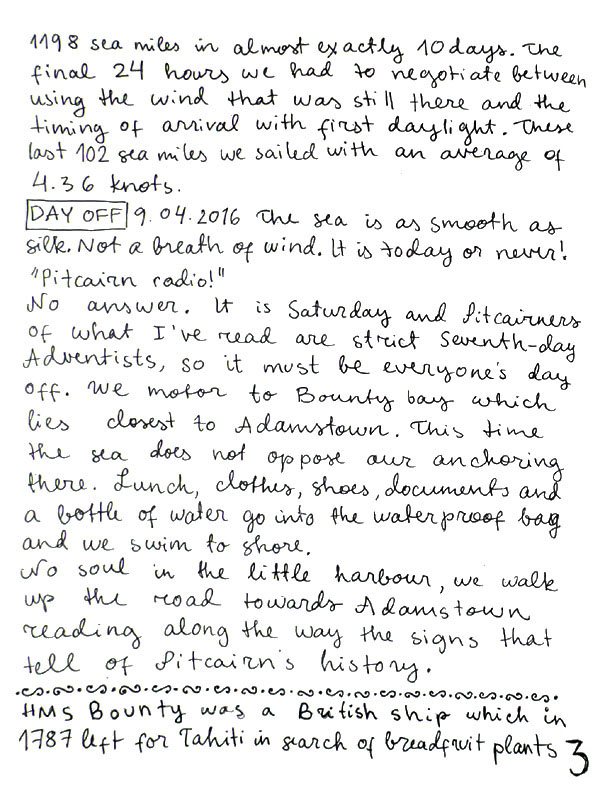 1198 sea miles in almost exactly 10 days. The
final 24 hours we had to negotiate between
using the wind that was still there and the
timing of arrival with first daylight. These
last 102 sea miles we sailed with an average of
4.36 knots.
DAY OFF 9.04.2016 The sea is as smooth as
silk. Not a breath of wind. It is today or never!
"Pitcairn radio!"
No answer. It is Saturday and Pitcairners
of what I've read are strict Seventh-day
Adventists, so it must be everyone's day
off. We motor to Bounty bay which
lies closest to Adamstown. This time
the sea does not oppose our anchoring
there. Lunch, clothes, shoes, documents and
a bottle of water go into the waterproof bag
and we swim to shore.
No soul in the little harbour, we walk
up the road towards Adamstown
reading along the way the signs that
tell of Pitcairn's history.
HMS Bounty was a British ship which in
1787 left for Tahiti in search of breadfruit plants
3